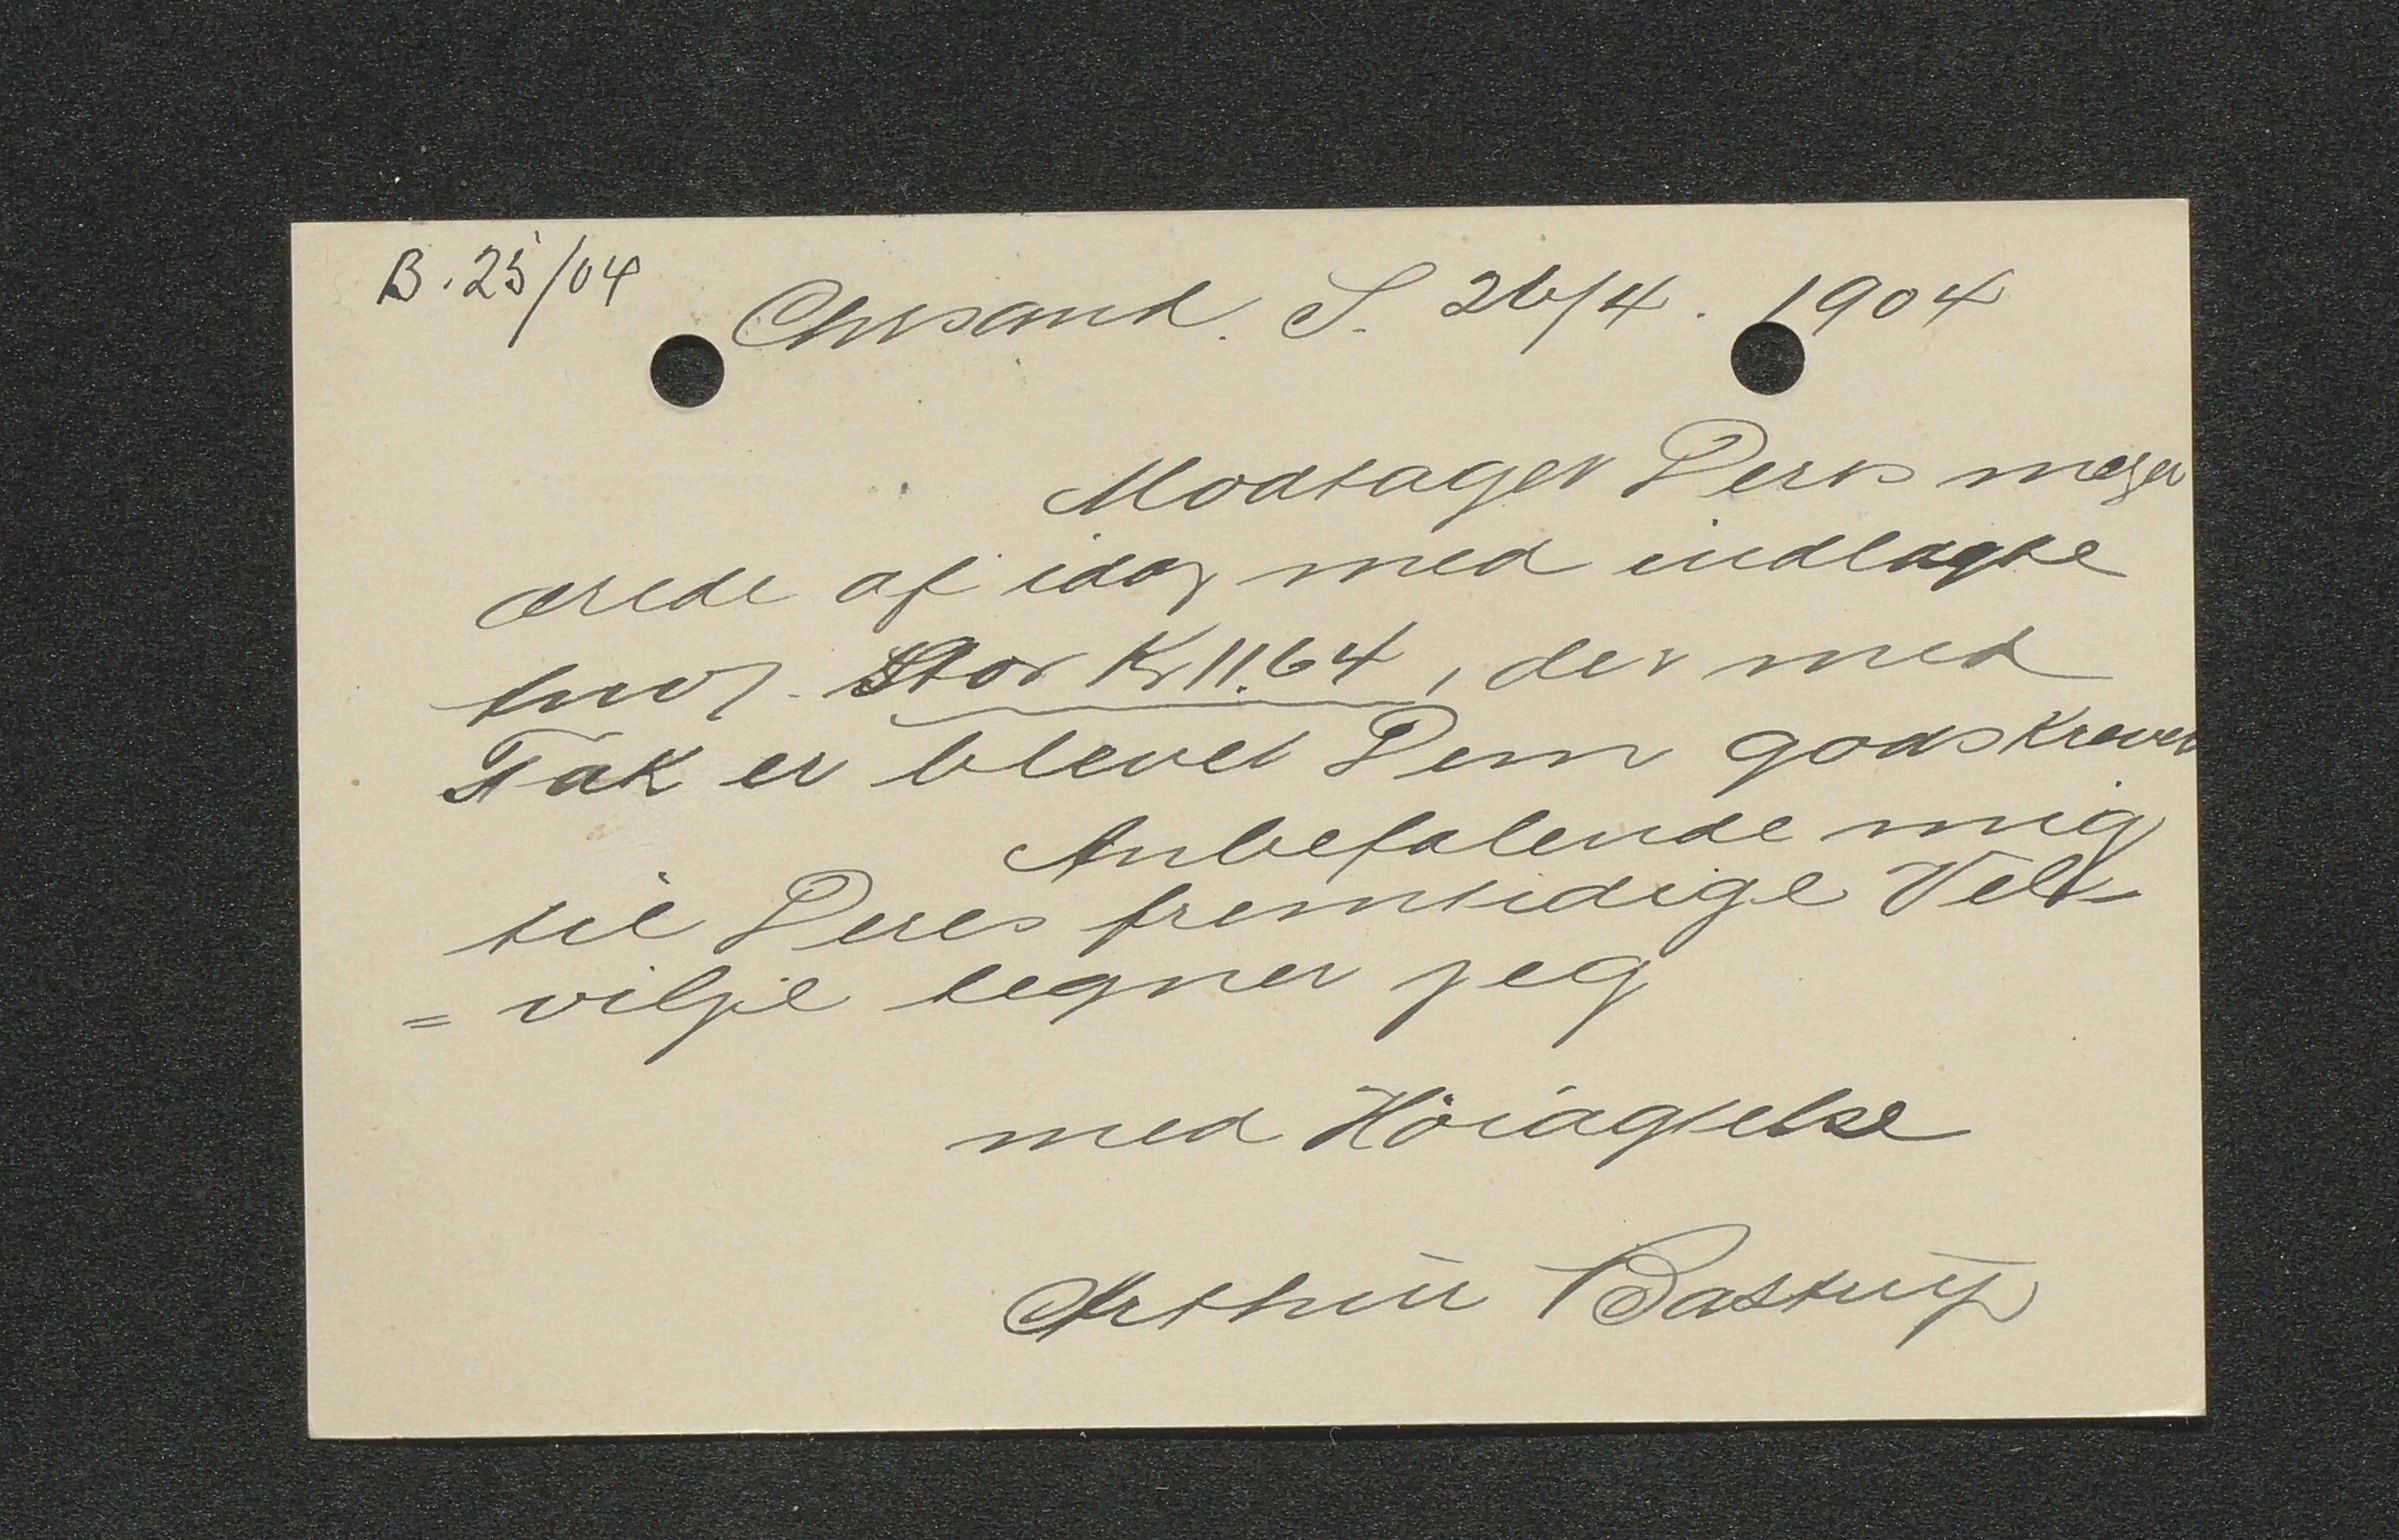 B. 25/04
Chrsand. S. 26/4. 1904
Modtager Deres meget
ærede af idag med indlagte
Stor Kr 11.64, der med
Tak er blevet Dem godskrevet
Anbefalende mig
til Deres fremtidige Vel=
=vilje tegner jeg
med Höiagtelse
Arthur Bastrup